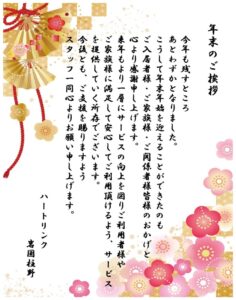 年末のご挨拶
今年も残すところ
あとわずかとなりました。
こうして年末年始を迎えることができたのも
ご入居者様・ご家族様・ご関係者様皆様のおかげと
心より感謝申し上げます。
来年もより一層にサービスの向上を図りご利用者様や
ご家族様に満足して安心してご利用頂けるよう、サービス
を提供していく所存でございます。
今後とも、ご支援を賜りますよう
スタッフ一同心よりお願い申し上げます。
ハートリンク
岩園枝野